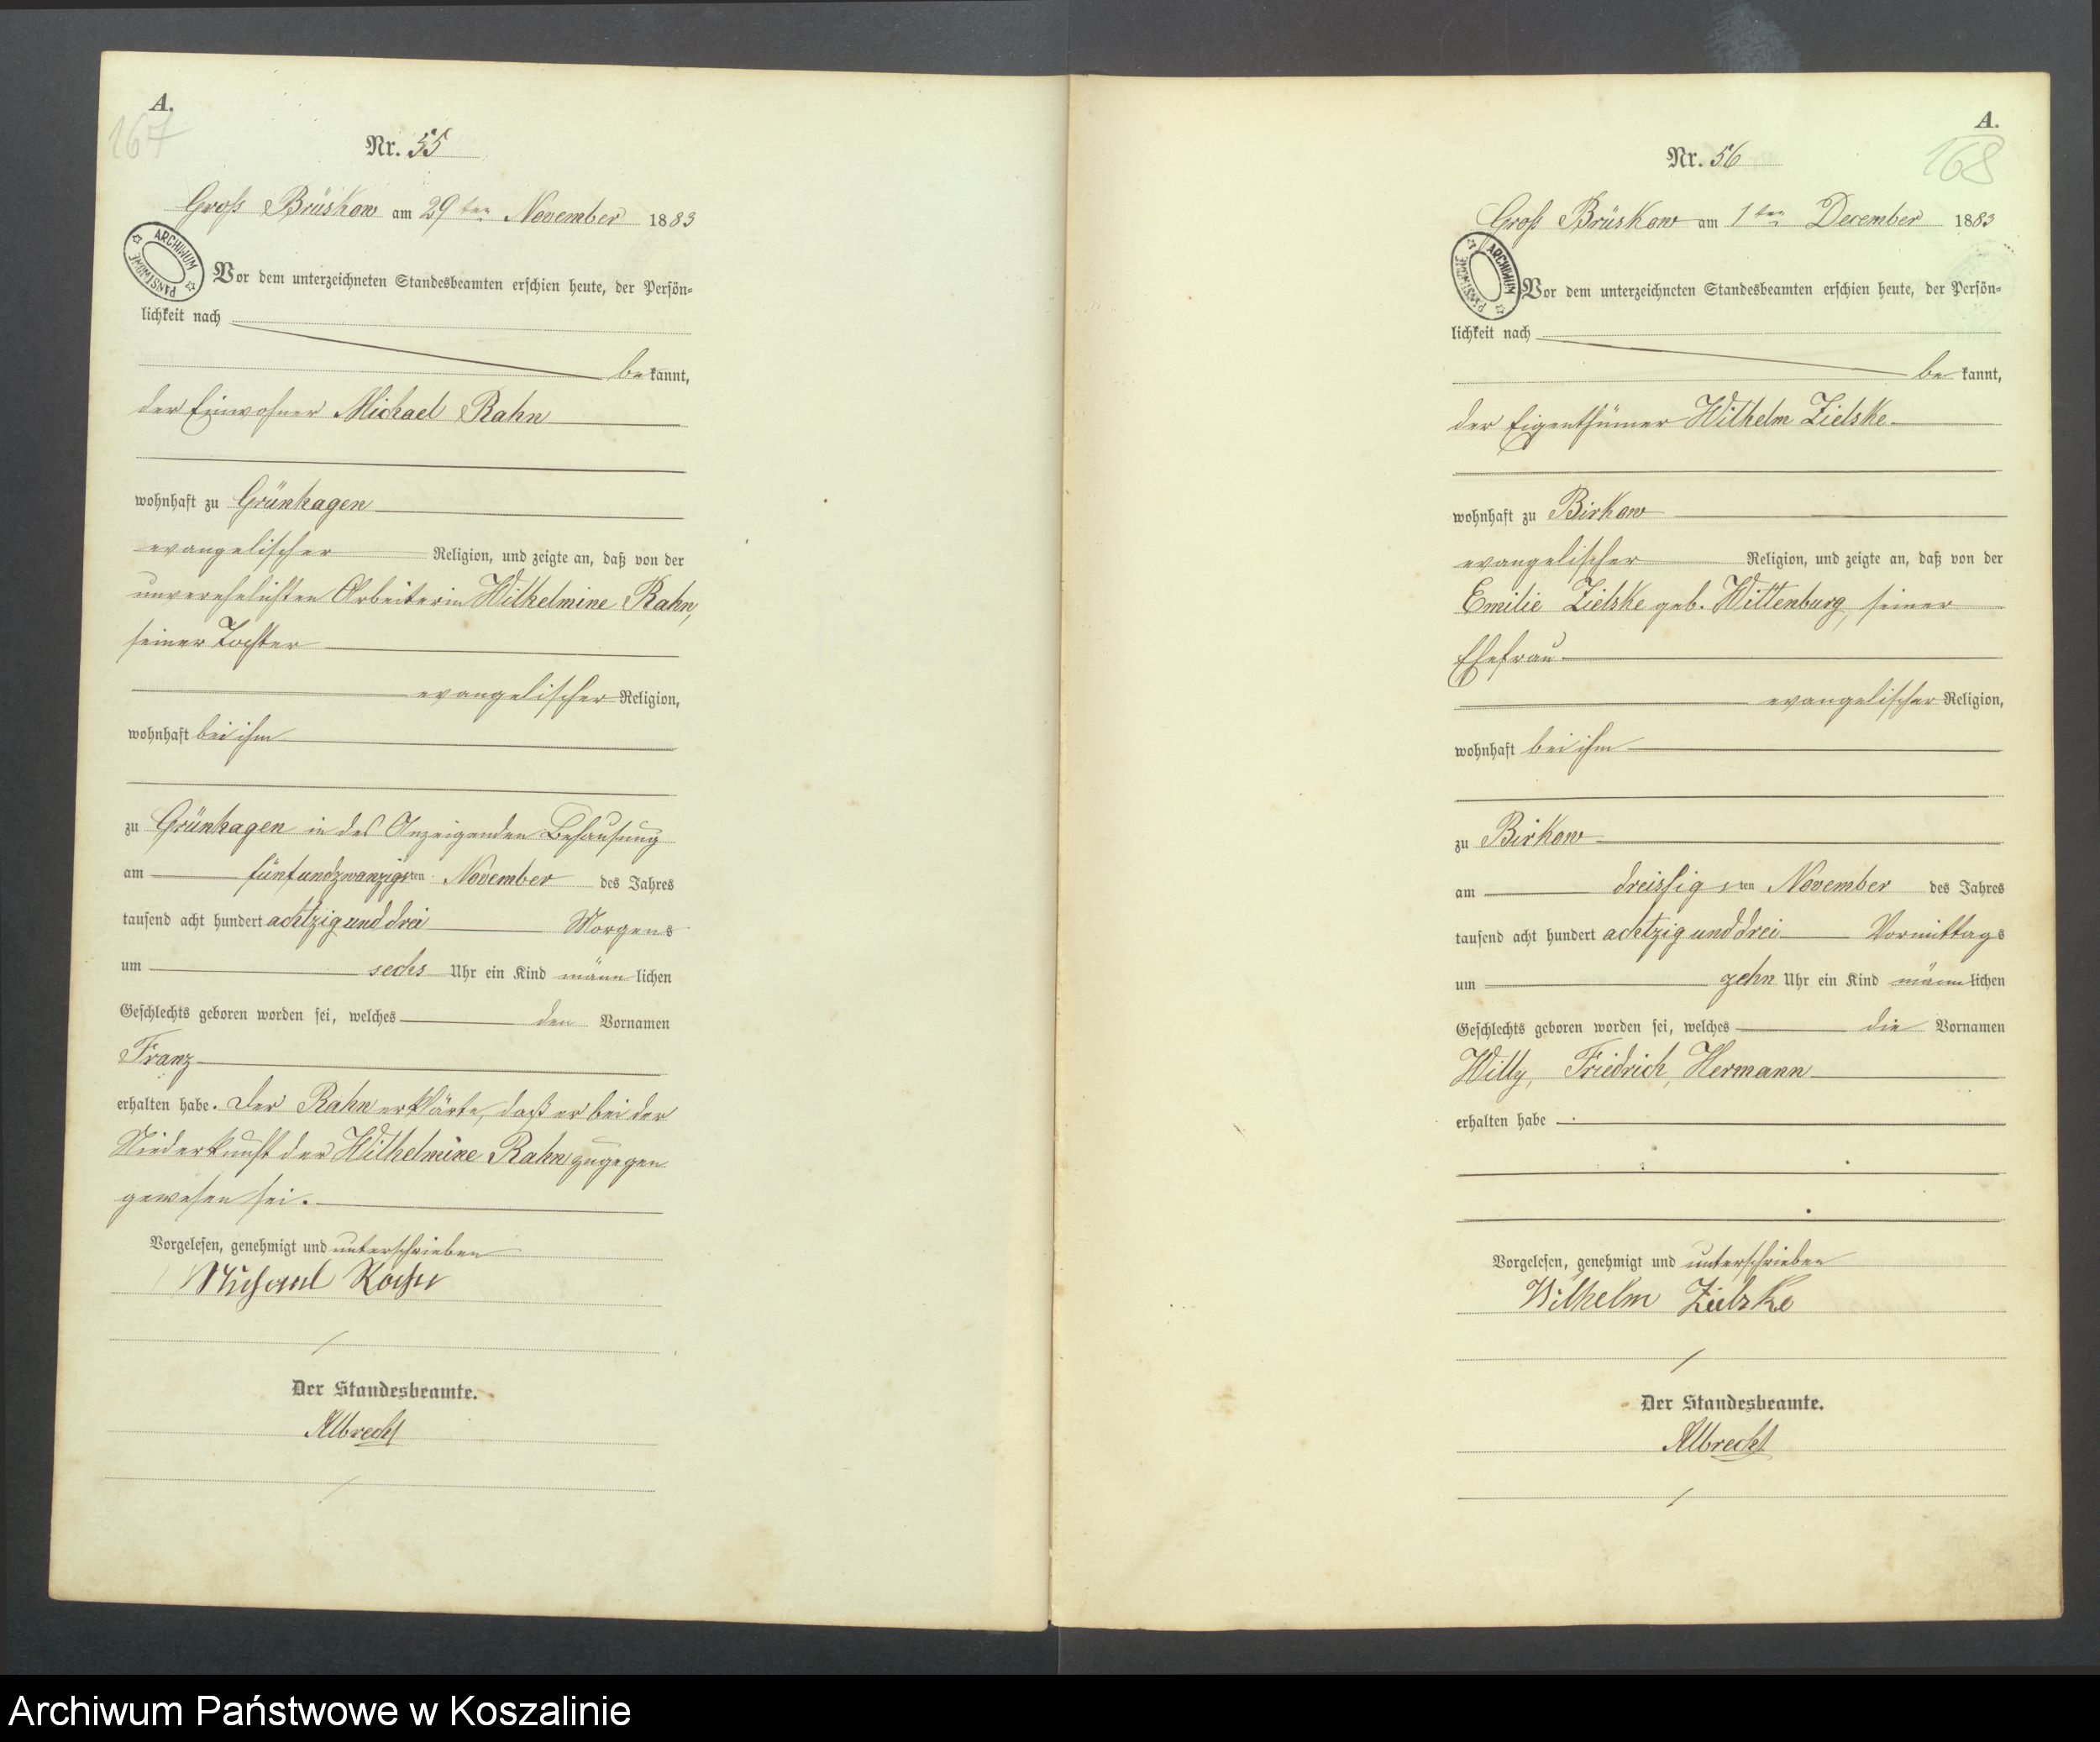 A.
167
Nr. 55
Groß Brüskow am 29ten November 1883
ARCHIWUM PAŃSTWOWE
Vor dem unterzeichneten Standesbeamten erschien heute, der Persön=
lichkeit nach
be kannt,
der Einwohner Michael Rahn
wohnhaft zu Grünhagen
evangelischer Religion, und zeigte an, daß von der
unverehelichten Arbeiterin Wilhelmine Rahn,
seiner Tochter
evangelischer Religion,
wohnhaft bei ihm
zu Grünhagen in des Anzeigenden Behausung
am fünfundzwanzigsten November des Jahres
tausend acht hundert achtzig und drei Morgens
um sechs Uhr ein Kind männlichen
Geschlechts geboren worden sei, welches den Vornamen
Franz
erhalten habe. Der Rahn erklärte, daß er bei der
Niederkunft der Wilhelmine Rahn zugegen
gewesen sei.
Vorgelesen, genehmigt und unterschrieben
Michael
Der Standesbeamte.
Albrecht
A.
168
Nr. 56
Groß Brüskow am 1ten December 1883
ARCHIWUM PAŃSTWOWE
Vor dem unterzeichneten Standesbeamten erschien heute, der Persön=
lichkeit nach
be kannt,
der Eigenthümer Wilhelm Zielske
wohnhaft zu Birkow
evangelischer Religion, und zeigte an, daß von der
Emilie Zielske geb. Wittenburg, seiner
Ehefrau
evangelischer Religion,
wohnhaft bei ihm
zu Birkow
am dreissigsten November des Jahres
tausend acht hundert achtzig und drei Vormittags
um zehn Uhr ein Kind männlichen
Geschlechts geboren worden sei, welches die Vornamen
Willy, Friedrich, Hermann
erhalten habe.
Vorgelesen, genehmigt und unterschrieben
Wilhelm Zielzke
Der Standesbeamte.
Albrecht
Archiwum Państwowe w Koszalinie